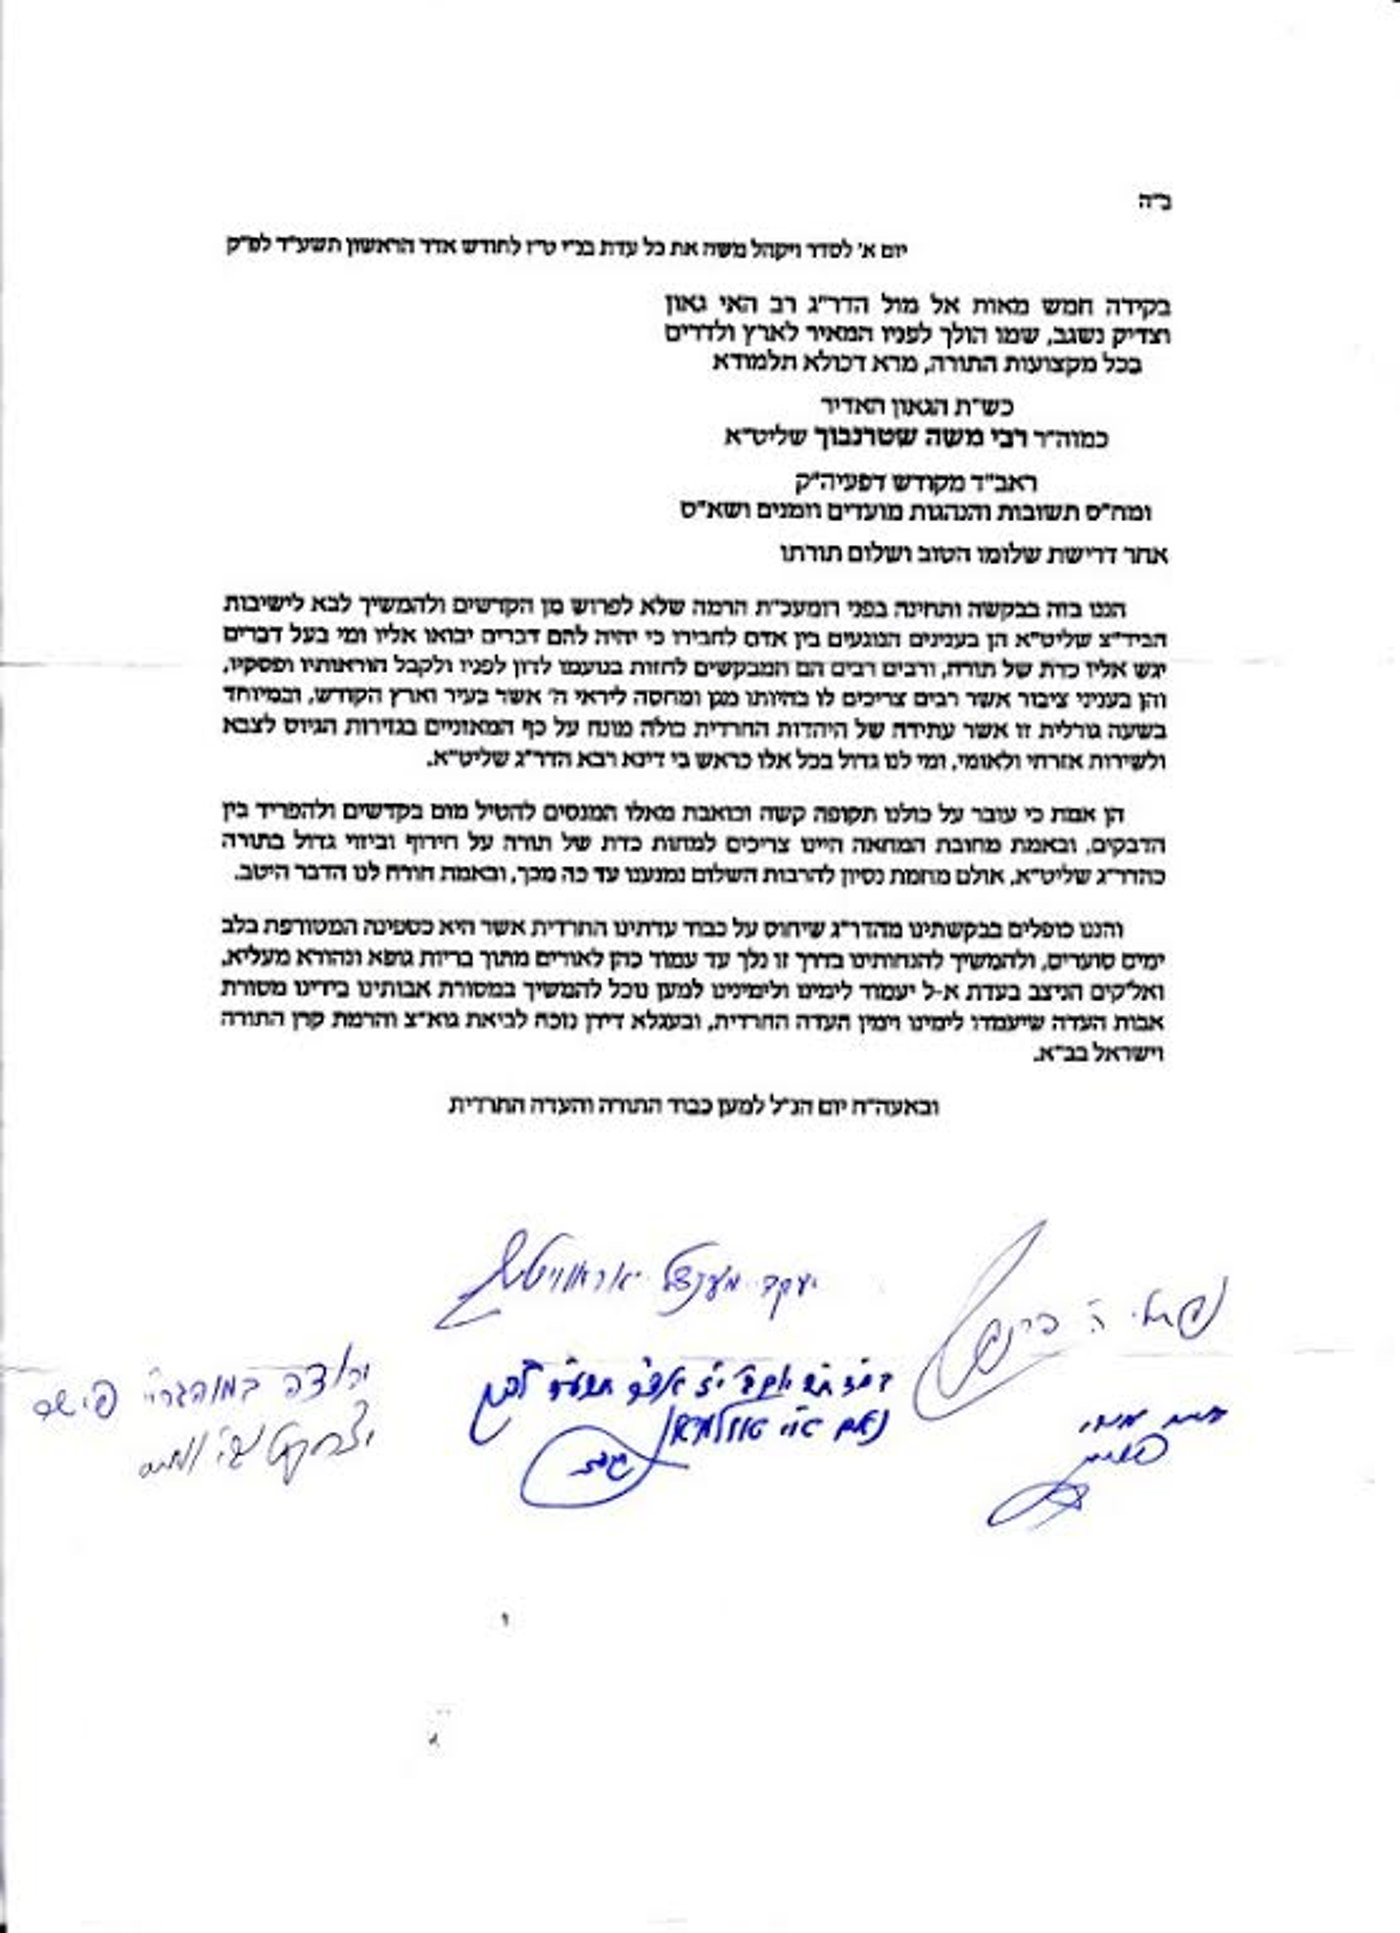 ב"ה
יום א' לסדר ויקהל משה את כל עדת בנ"י ט"ז לחודש אדר הראשון תשע"ד לפ"ק
בקידה חמש מאות אל מול הדר"ג רב האי גאון
וצדיק נשגב, שמו הולך לפניו המאיר לארץ ולדרים
בכל מקצועות התורה, מרא דכולא תלמודא
כש"ת הגאון האדיר
כמוה"ר רבי משה שטרנבוך שליט"א
ראב"ד מקודש דפעיה"ק
ומח"ס תשובות והנהגות מועדים וזמנים ושא"ס
אחר דרישת שלומו הטוב ושלום תורתו
הננו בזה בבקשה ותחינה בפני רומעכ"ת הרמה שלא לפרוש מן הקדשים ולהמשיך לבא לישיבות
הביד"צ שליט"א הן בענינים הנוגעים בין אדם לחבירו כי יהיה להם דברים יבואו אליו ומי בעל דברים
יגש אליו כדת של תורה, ורבים רבים הם המבקשים לחזות בנועמו לדון לפניו ולקבל הוראותיו ופסקיו,
והן בעניני ציבור אשר רבים צריכים לו בהיותו מגן ומחסה ליראי ה' אשר בעיר וארץ הקודש, ובמיוחד
בשעה גורלית זו אשר עתידה של היהדות החרדית כולה מונח על כף המאזניים בגזירות הגיוס לצבא
ולשירות אזרחי ולאומי, ומי לנו גדול בכל אלו כראש בי דינא רבא הדר"ג שליט"א.
הן אמת כי עובר על כולנו תקופה קשה וכואבת מאלו המנסים להטיל מום בקדשים ולהפריד בין
הדבקים, ובאמת מחובת המחאה היינו צריכים למחות כדת של תורה על חירוף וביזוי גדול בתורה
כהדר"ג שליט"א, אולם מחמת נסיון להרבות השלום נמנענו עד כה מכך, ובאמת חורה לנו הדבר היטב.
והננו כופלים בבקשתינו מהדר"ג שיחוס על כבוד עדתינו החרדית אשר היא כספינה המטורפת בלב
ימים סוערים, ולהמשיך להנחותינו בדרך זו נלך עד עמוד כהן לאורים מתוך בריות גופא ונהורא מעליא,
ואלקים הניצב בעדת א-ל יעמוד לימינו ולימינינו למען נוכל להמשיך במסורת אבותינו בידינו מסורת
אבות העדה שיעמדו לימינו וימין העדה החרדית, ובעגלא דידן נזכה לביאת גוא"צ והרמת קרן התורה
וישראל בב"א.
ובאעה"ח יום הנ"ל למען כבוד התורה והעדה החרדית
יעקב מענדל